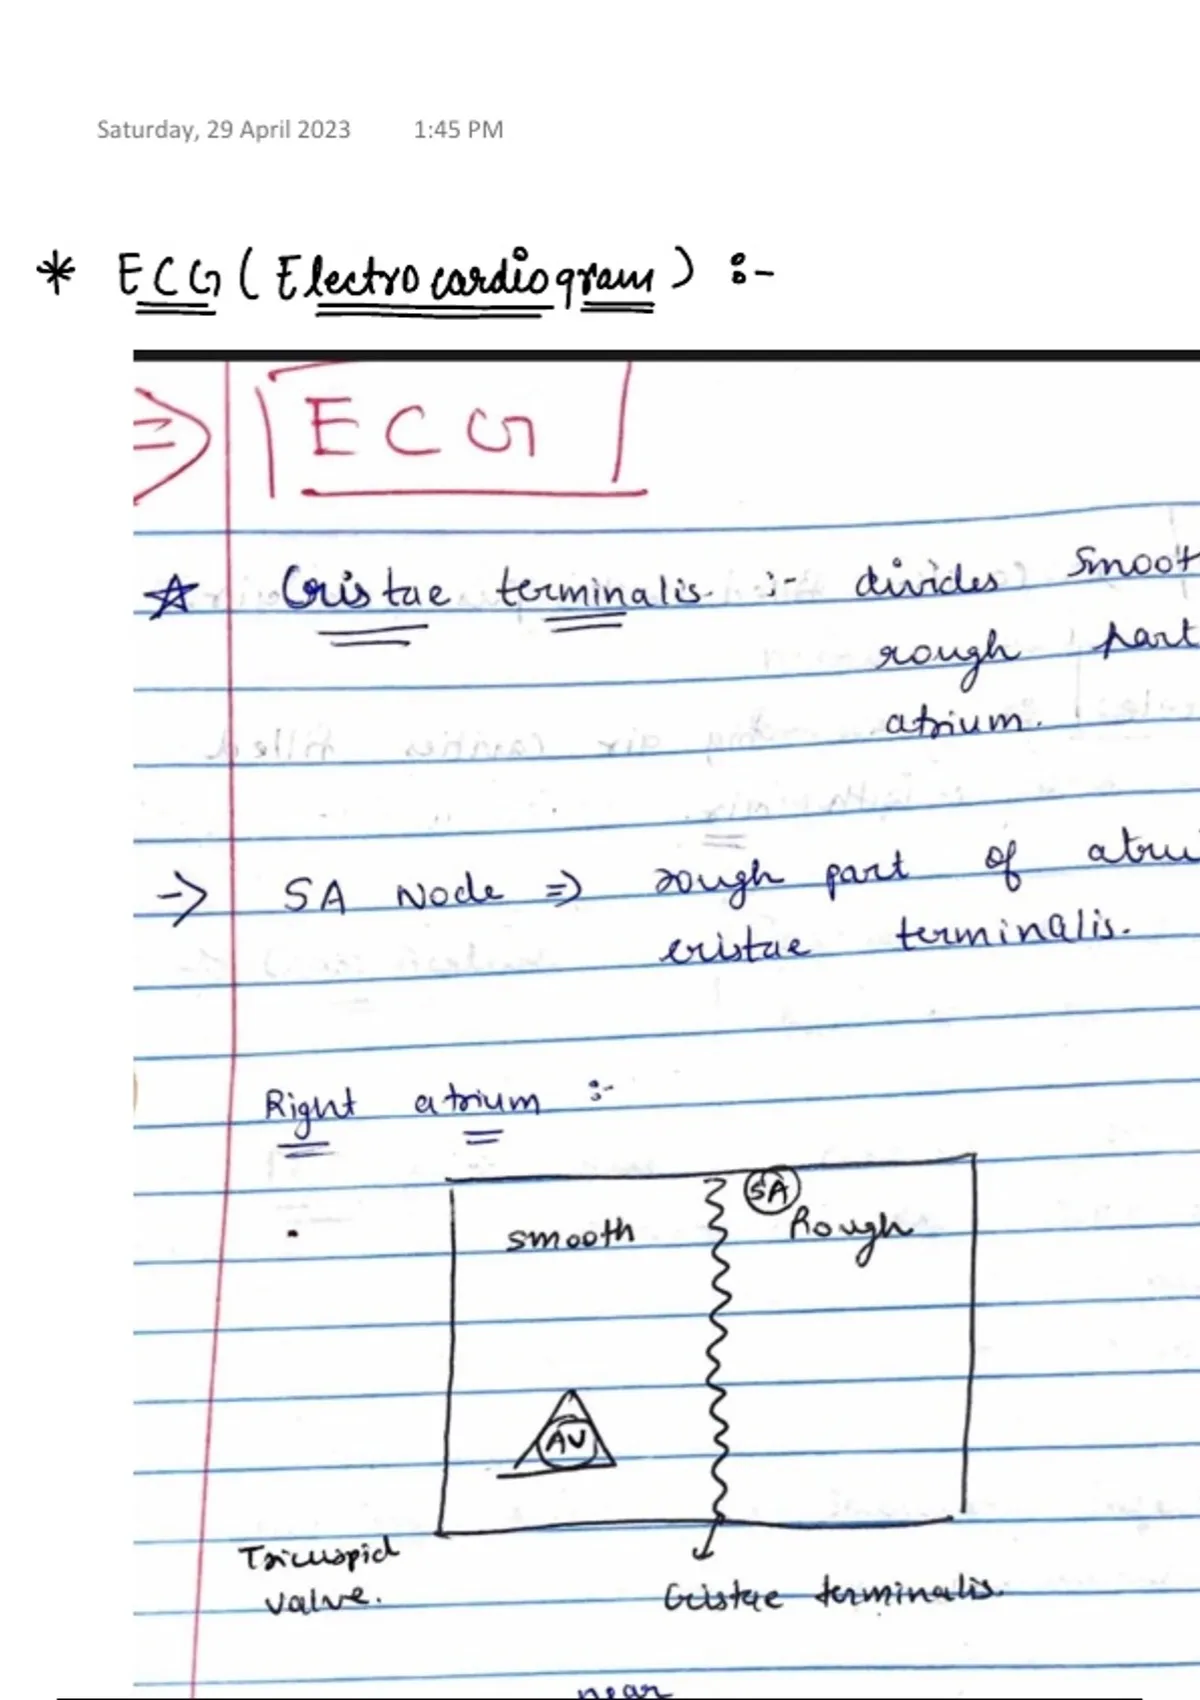 Saturday, 29 April 2023 1:45 PM
* ECG (Electrocardiogram) :-
⇒ ECG
☆ Cristae terminalis :- divides Smoot
rough part
atrium.
-> SA Node => rough part of atriu
cristae terminalis.
Right atrium :-
SA
smooth Rough
AV
Tricuspid
valve.
Cristae terminalis.
near